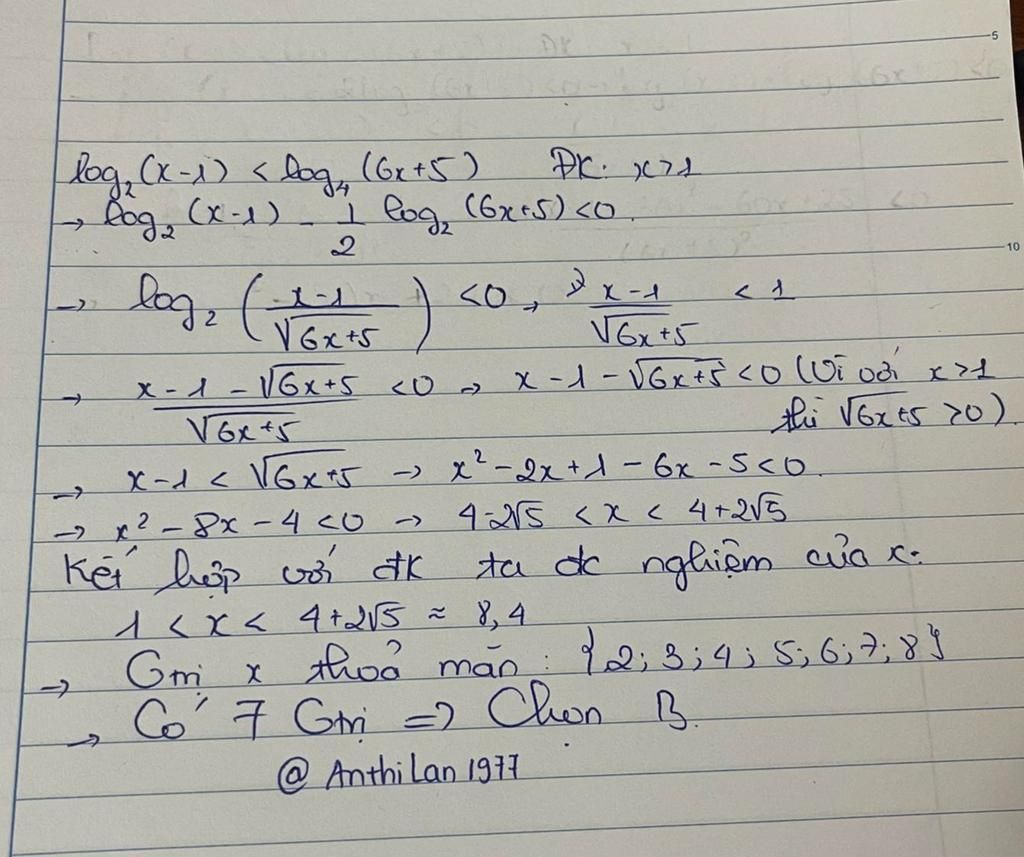 5
log₂(x-1) < log₄(6x+5) ĐK: x>1
→ log₂(x-1) - 1/2 log₂(6x+5) <0.
10
→ log₂((x-1)/√(6x+5)) <0 → (x-1)/√(6x+5) < 1
→ (x-1-√(6x+5))/√(6x+5) <0 → x-1-√(6x+5) <0 (Vì với x>1
thì √(6x+5) >0)
→ x-1 < √(6x+5) → x²-2x+1-6x-5<0.
→ x²-8x-4<0 → 4-2√5 < x < 4+2√5
Kết hợp với đk ta đc nghiệm của x:
1 < x < 4+2√5 ≈ 8,4
→ Gtrị x thoả mãn: {2; 3; 4; 5; 6; 7; 8}
→ Có 7 Gtrị => Chọn B.
@ Anthi Lan 1977